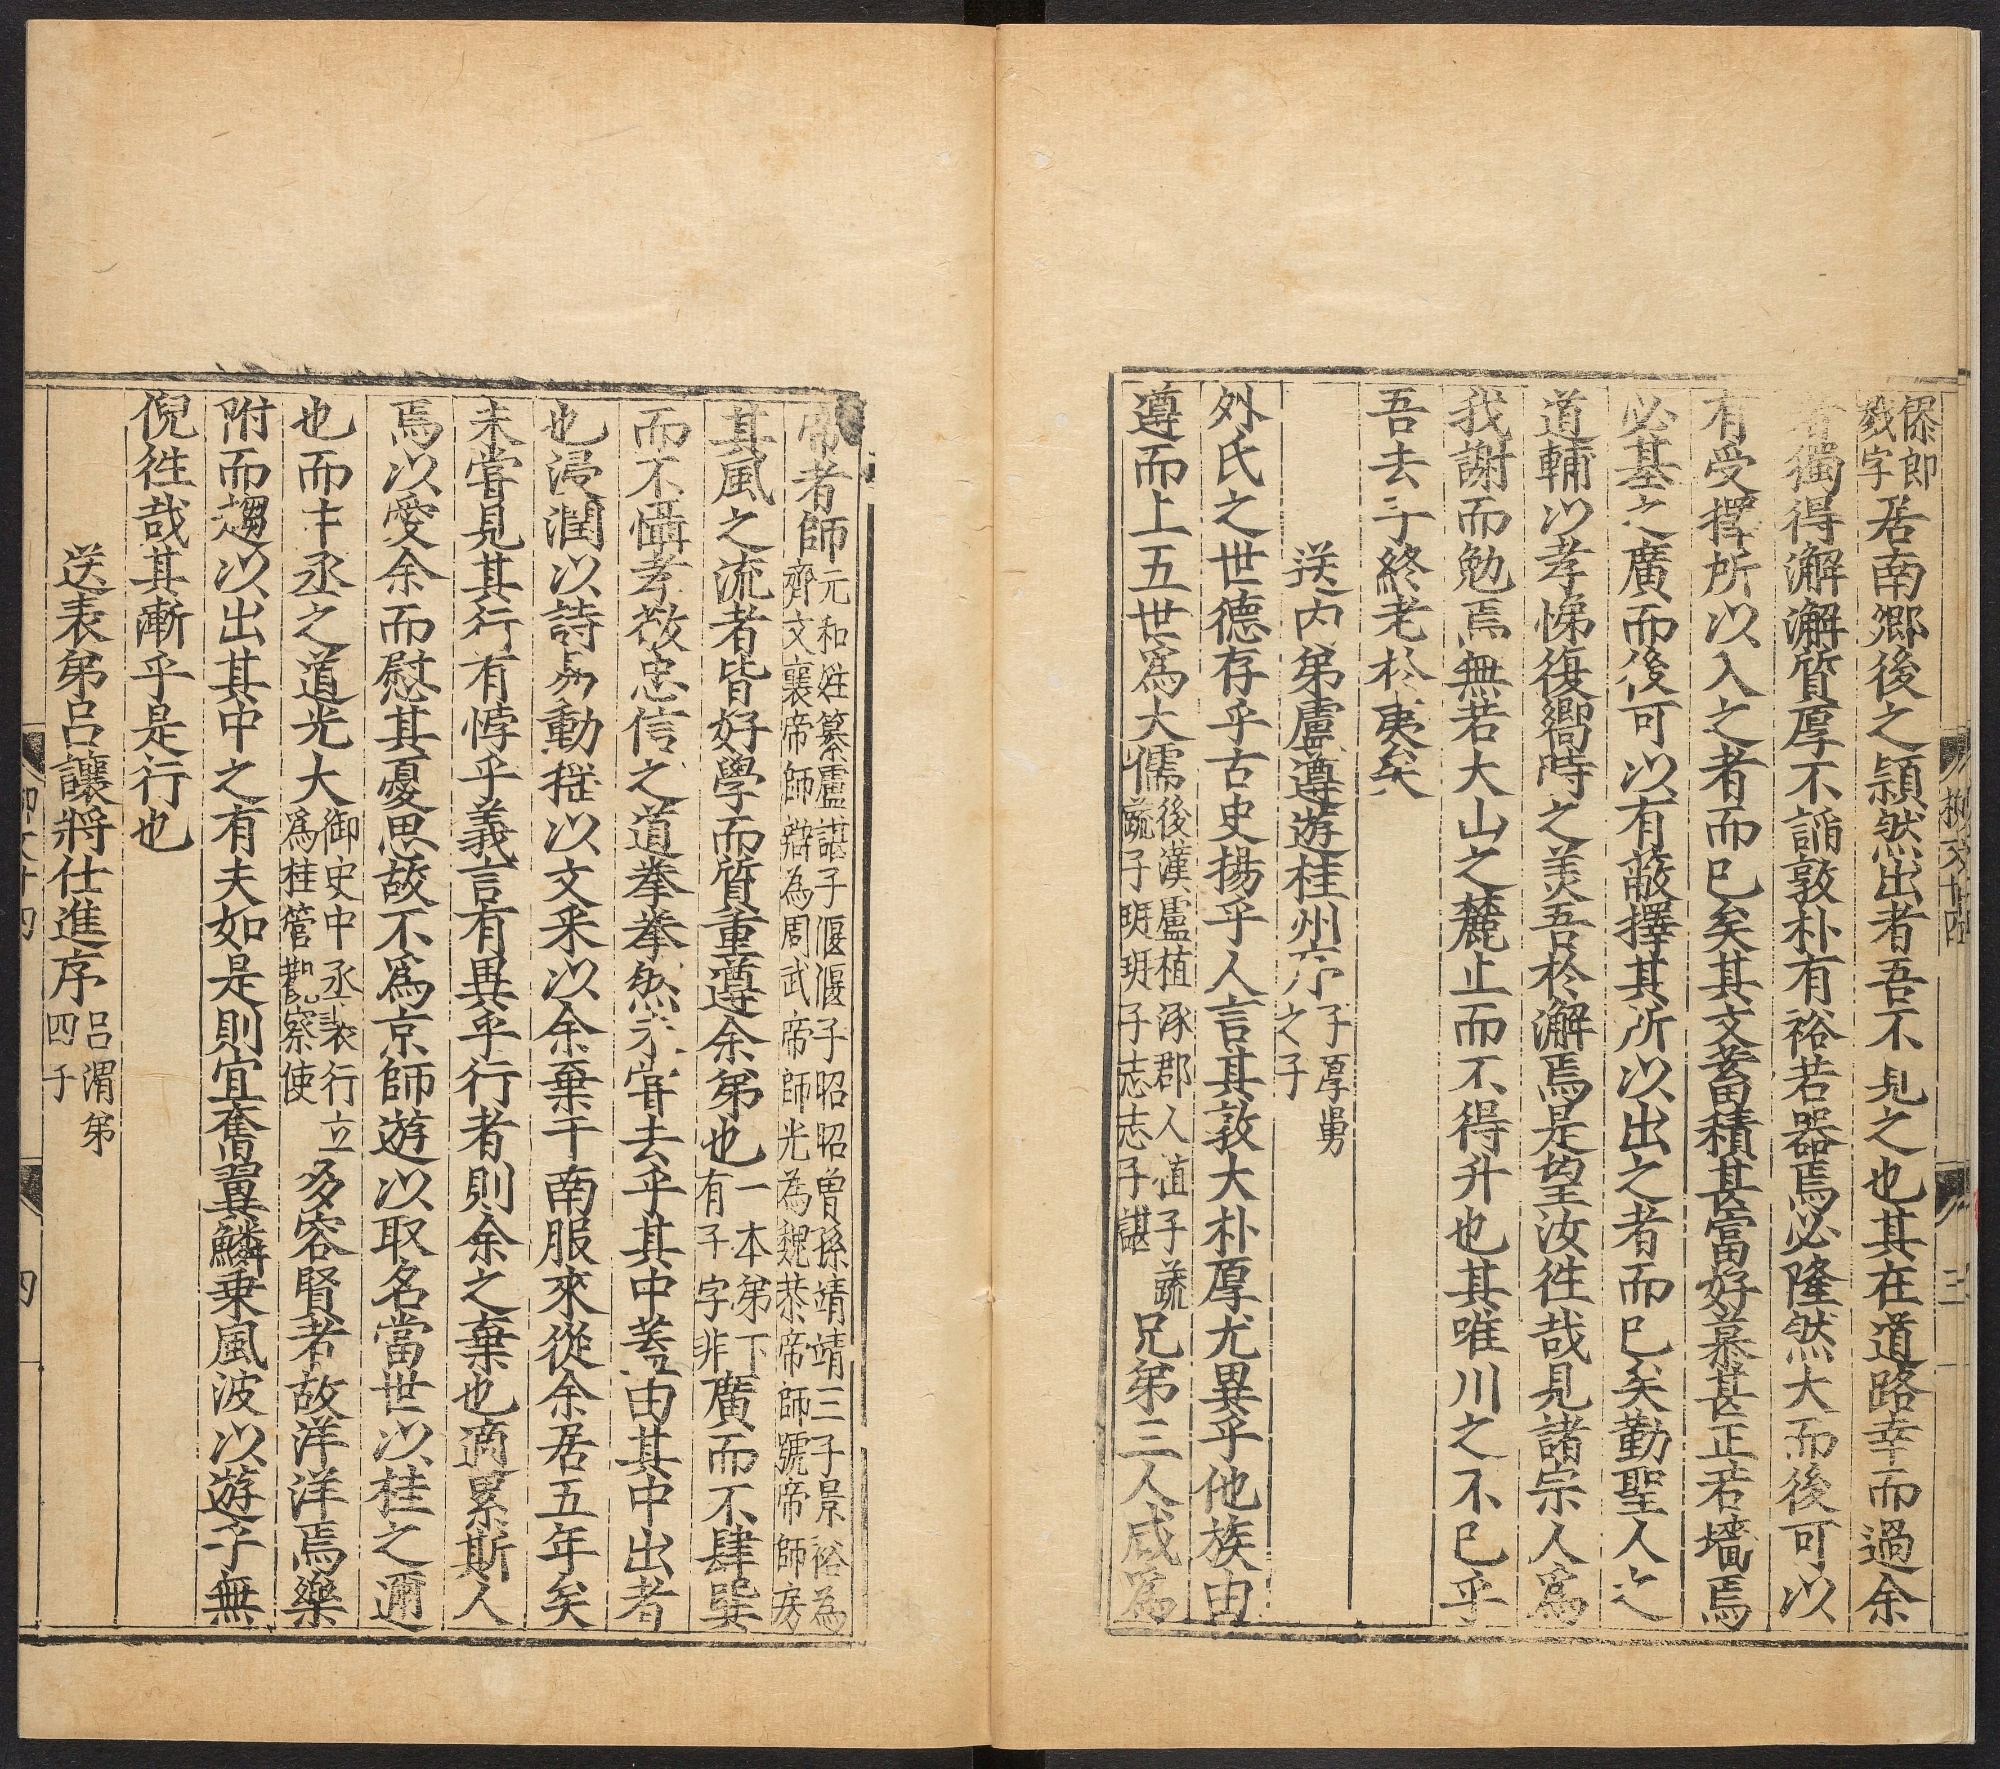 僇即戮字居南郷後之頴然出者吾不見之也其在道路幸而過余
者獨得澥澥質厚不諂敦朴有裕若器焉必隆然大而後可以
有受擇所以入之者而已矣其文蓄積甚富好慕甚正若墻焉
必基之廣而後可以有蔽擇其所以出之者而已矣勤聖人之
道輔以孝悌復嚮時之美吾於澥焉是望汝徃哉見諸宗人爲
我謝而勉焉無若太山之麓止而不得升也其唯川之不已乎
吾去子終老於夷矣
送内弟盧遵遊桂州序子厚舅之子
外氏之世德存乎古史揚乎人言其敦大朴厚尤異乎他族由
遵而上五世爲大儒後漢盧植涿郡人植子毓毓子珽珽子志志子諶兄弟三人咸爲
柳文十四
三
帝者師元和姓纂盧諶子偃偃子昭昭曽孫靖靖三子景裕為齊文襄帝師辯為周武帝師光為魏恭帝師號帝師房
其風之流者皆好學而質重遵余弟也一本弟下有子字非廣而不肆巽
而不懾孝敬忠信之道拳拳然未甞去乎其中蓋由其中出者
也浸潤以詩易動揺以文采以余棄于南服來從余居五年矣
未嘗見其行有悖乎義言有異乎行者則余之棄也適累斯人
焉以愛余而慰其憂思故不爲京師遊以取名當世以桂之邇
也而中丞之道光大御史中丞裴行立爲桂管觀察使多容賢者故洋洋焉樂
附而趨以出其中之有夫如是則宜奮翼鱗乗風波以遊乎無
倪徃哉其漸乎是行也
送表弟呂讓將仕進序呂渭弟四子
四